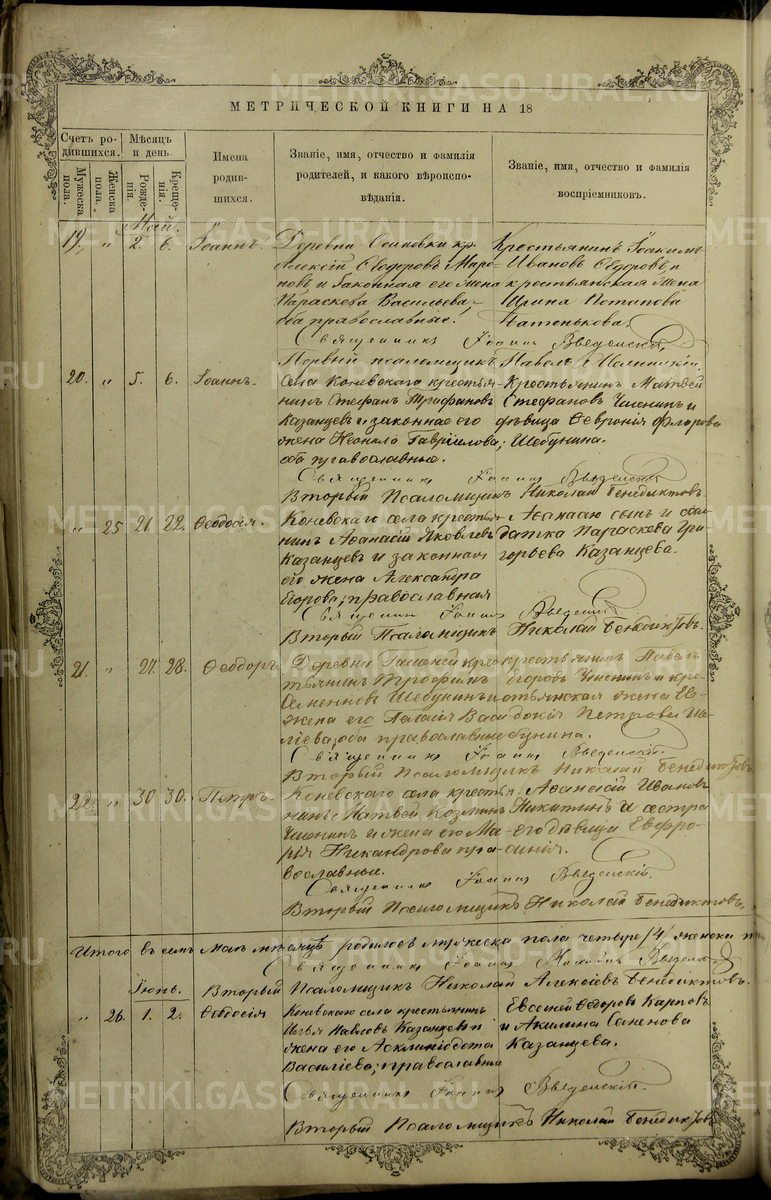 МЕТРИЧЕСКОЙ КНИГИ НА 18
Счетъ родившихся.
Мужеска пола.
Женска пола.
Мѣсяцъ и день
Рожденія.
Крещенія.
Имена родившихся.
Званіе, имя, отчество и фамилія
родителей, и какого вѣроисповѣданія.
Званіе, имя, отчество и фамилія
воспріемниковъ.
Май.
19. " 2. 6. Іоаннъ.
Деревни Осиновки кр.
Алексій Ѳеодоровъ
новъ и законная его жена
Параскева Васильева,
оба православные.
Крестьянинъ Іоакимъ
Ивановъ Ѳедоровъ и
крестьянская жена
Ирина Потапова
Патенькова.
Священникъ Іоаннъ Введенскій
Первый псаломщикъ Павелъ
20. " 5. 6. Іоаннъ.
Села Коневскаго крестьянинъ
Стефанъ Трифановъ
Казанцевъ и законная его
жена Неонила Гавріилова,
оба православные.
Крестьянинъ Матвей
Стефановъ Чиенинъ и
дѣвица Февронія Флорова
Шебунина.
Священникъ Іоаннъ Введенскій
Вторый Псаломщикъ Николай Бенедиктовъ.
" 25 21. 22. Ѳеодосія.
Коневскаго села крестьянинъ
Аѳанасій Яковлевъ
Казанцевъ и законная
его жена Александра
Егорова, православная
Параскева Григорьева Казанцева.
Священникъ Іоаннъ Введенскій
Вторый Псаломщикъ Николай Бенедиктовъ.
21. " 27. 28. Ѳеодоръ.
Деревни крестьянинъ Трофимъ
Семеновъ Шебунинъ и
жена его Пелагія Василіева,
оба православные
Крестьянинъ Павелъ
Егоровъ Чиенинъ и крестьянская жена
Евдокія Петрова Шебунина.
Священникъ Іоаннъ Введенскій.
Вторый Псаломщикъ Николай Бенедиктовъ
22. " 30 30. Петръ.
Коневскаго села крестьянинъ
Матвей Козминъ
Чиенинъ и жена его Марія
Никандрова православные.
Аѳанасій Ивановъ
Никитинъ и сестра
его дѣвица Евфросинія.
Священникъ Іоаннъ Введенскій.
Вторый Псаломщикъ Николай Бенедиктовъ.
Итого въ семъ Маѣ мѣсяцѣ родилось мужеска пола четыре /4/ женска п
Священникъ Іоаннъ Введенскій
Вторый Псаломщикъ Николай Алексіевъ Бенедиктовъ.
Іюнь.
" 26. 1. 2. Ѳеодосія
Коневскаго села крестьянинъ
Илья Павловъ Казанцевъ и
жена его Асклипіодота
Василіева, православные
Евсевій Ѳедоровъ Карповъ
и Акилина Семенова
Казанцева.
Священникъ Іоаннъ Введенскій.
Вторый Псаломщикъ Николай Бенедиктовъ
METRIKI.GASO-URAL.RU